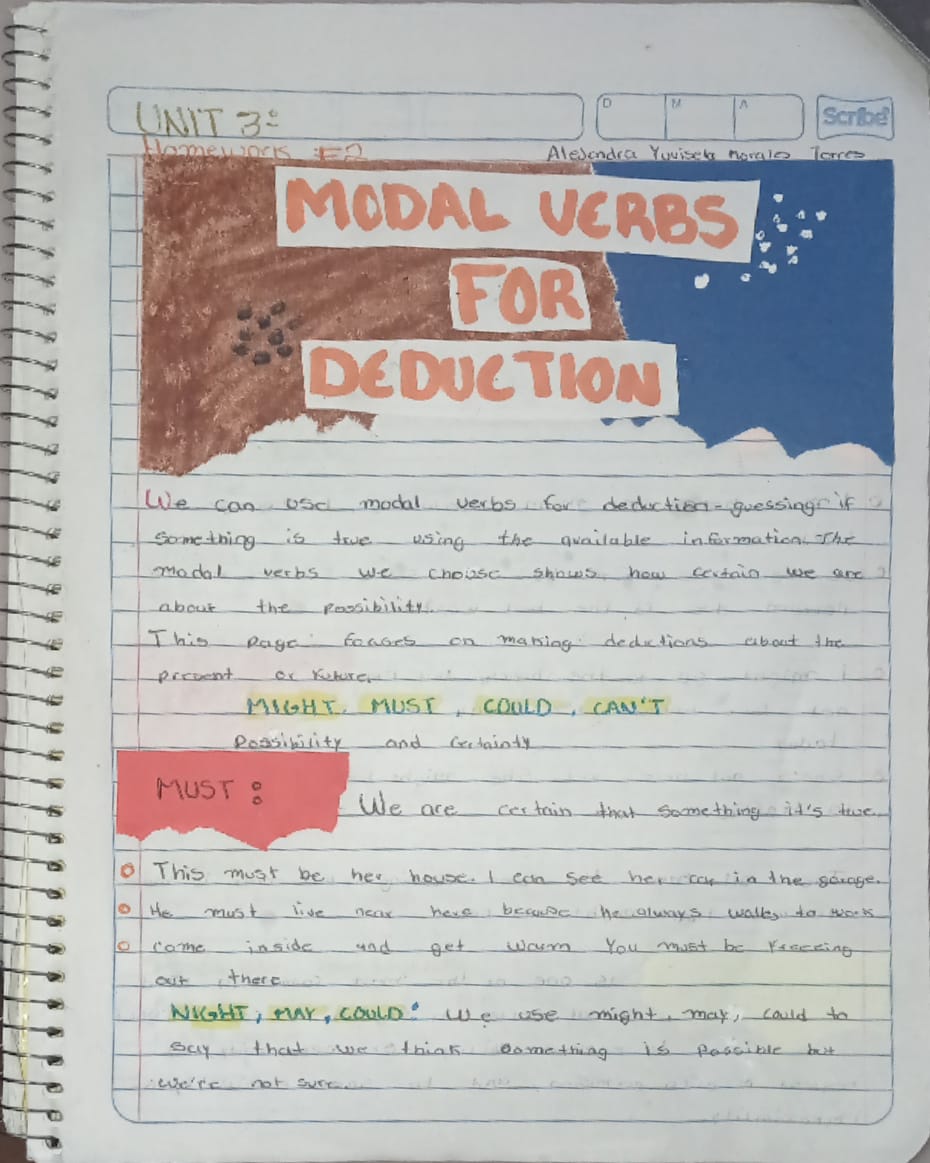 UNIT 3:
D M A
Scribe
Homework #2
Alejandra Yuvisela Morales Torres
MODAL VERBS
FOR
DEDUCTION
We can use modal verbs for deduction - guessing if
something is true using the available information. The
modal verbs we choose shows how certain we are
about the possibility.
This page focuses on making deductions about the
present or future.
MIGHT, MUST, COULD, CAN'T
Possibility and Certainty
MUST:
We are certain that something it's true.
This must be her house. I can see her car in the garage.
He must live near here because he always walks to work
come inside and get warm You must be freezing
out there
NIGHT, MAY, COULD: We use might, may, could to
say that we think something is possible but
we're not sure.